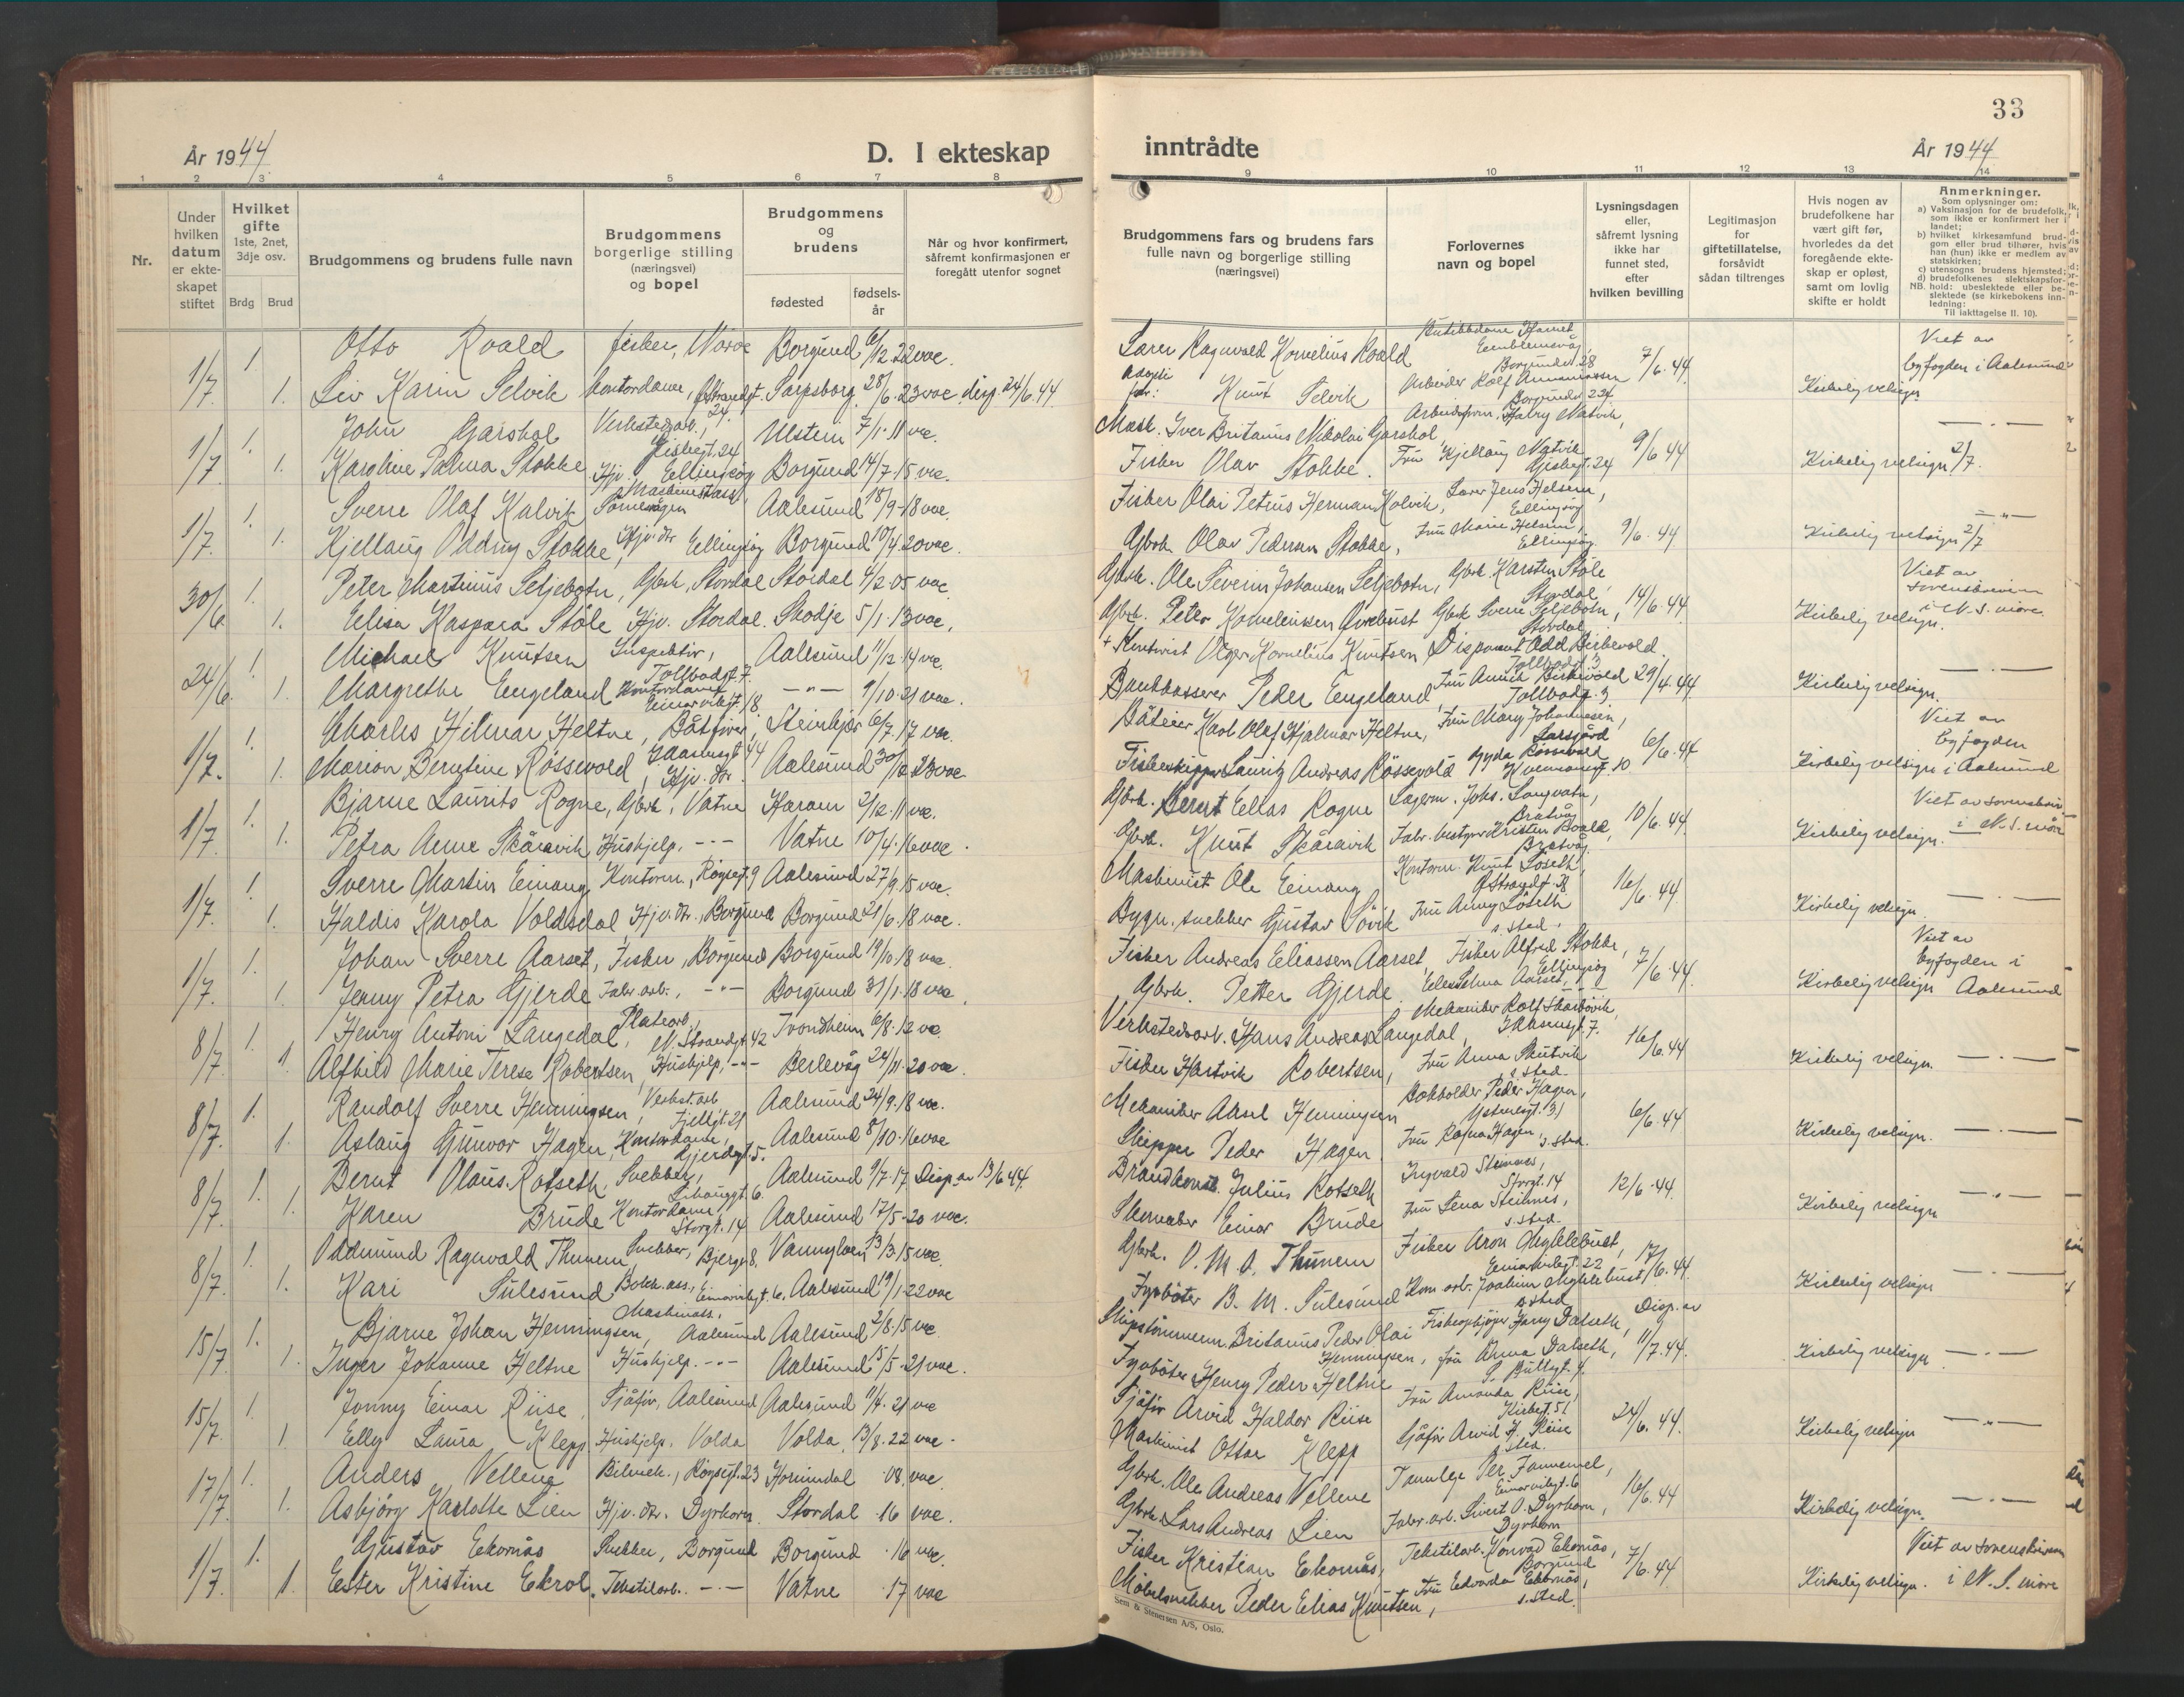 33
År 1944
D. I ekteskap
inntrådte
År 1944
1 2 3 4 5 6 7 8
9 10 11 12 13 14
Nr.
Under hvilken datum er ekteskapet stiftet
Hvilket gifte
1ste, 2net, 3dje osv.
Brdg Brud
Brudgommens og brudens fulle navn
Brudgommens borgerlige stilling (næringsvei) og bopel
Brudgommens og brudens
fødested fødselsår
Når og hvor konfirmert, såfremt konfirmasjonen er foregått utenfor sognet
Brudgommens fars og brudens fars fulle navn og borgerlige stilling (næringsvei)
Forlovernes navn og bopel
Lysningsdagen eller, såfremt lysning ikke har funnet sted, efter hvilken bevilling
Legitimasjon for giftetillatelse, forsåvidt sådan tiltrenges
Hvis nogen av brudefolkene har vært gift før, hvorledes da det foregående ekteskap er opløst, samt om lovlig skifte er holdt
Anmerkninger.
Som oplysninger om:
a) Vaksinasjon for de brudefolk, som ikke er konfirmert her i landet;
b) hvilket kirkesamfund brudgom eller brud tilhører, hvis han (hun) ikke er medlem av statskirken;
c) utensogns brudens hjemsted;
d) brudefolkenes slektskapsforhold: ubeslektede eller beslektede (se kirkebokens innledning:
NB.
Til iakttagelse II. 10).
1/7 1. Otto Roald fisker, Borgund 6/12 22 vac.
1. Liv Karin Selvik kontordame, 24. Sarpsborg 28/6 23 vac. disp. 24/6 44
1/7 1. John Garshol Verkstedarb., 24 Ulstein 7/1 11 vac.
1. Karoline Palma Stokke Hjv. Ellingsøy Borgund 14/7 15 vac.
1/7 1. Sverre Olaf Kalvik Aalesund 18/9 18 vac.
1. Kjellaug Oddny Stokke, Hjv. dtr. Ellingsøy Borgund 10/4 20 vac.
30/6 1. Peter Martinus Seljebotn, Gbrk, Stordal Stordal 4/2 05 vac.
1. Elisa Kaspara Støle Hjv. Stordal. Skodje 5/1 13 vac.
24/6 1. Michael Knutsen Inspektør, Tollbodgt. 7 Aalesund 11/12 14 vac.
1. Margrethe Engeland Kontordame 18 —"— 9/10 21 vac.
1/7. 1. Charles Hilmar Heltne, Båtfører, 44 Steinkjær 6/7 17 vac.
1. Marion Berntine Røssevold, Hjv. dtr. Aalesund 30/12 23 vac.
1/7. 1. Bjarne Laurits Rogne, Gbrk, Vatne Haram 2/12 11 vac.
1. Petra Anne Skåravik Hushjelp, -"- Vatne 10/4 16 vac.
1/7. 1. Sverre Martin Einang Kontorm., Røysegt. 9 Aalesund 27/9 15 vac.
1. Haldis Karola Voldsdal Hjv. dtr., Borgund Borgund 21/6 18 vac.
1/7. 1. Johan Sverre Aarset, Fisker, Borgund Borgund 19/10 18 vac.
1. Jenny Petra Gjerde Fabr. arb., -"- Borgund 31/1 18 vac.
8/7. 1. Henry Antoni Langedal, Platearb., N. Strandgt 42 Trondheim 6/8 12 vac.
1. Alfhild Marie Terese Robertsen, Hushjelp, -"- Berlevåg 24/11 20 vac.
8/7. 1. Randolf Sverre Henningsen, Verkst.arb Fjellgt. 21 Aalesund 24/9 18 vac.
1. Aslaug Gunvor Hagen, Kontordame, 5. Aalesund 8/10 16 vac
8/7. 1. Bernt Olaus Rotseth, Snekker, 6. Aalesund 9/7 17 Disp. av 13/6 44.
1. Karen Brude Kontordame, Storgt. 14 Aalesund 17/5 20 vac.
8/7. 1. Oddmund Ragnvald Thunem, Snekker, 8. Vannylven 13/3 15 vac.
1. Kari Sulesund Bokh. ass., 6. Aalesund 19/1 22 vac
15/7. 1. Bjarne Johan Henningsen, Maskinass., Aalesund Aalesund 2/8 15 vac.
1. Inger Johanne Heltne Hushjelp. -"- Aalesund 15/5 21 vac.
15/7. 1. Jonny Einar Riise Sjåfør, Aalesund Aalesund 11/4 21 vac
1. Elly Laura Klepp Hushjelp, Volda Volda 13/8 22 vac.
17/7. 1. Anders Vellene Røysegt. 23 Hornindal 08 vac.
1. Asbjørg Karlotte Lien Hjv. dtr. Dyrkorn Stordal 16 vac.
1/7. 1. Gustav Ekornås Snekker, Borgund Borgund 16 vac.
1. Ester Kristine Ekrol. Tekstilarb. -"- Vatne 17 vac
Lærer Ragnvald Kornelius Roald 7/6 44 Viet av byfogden i Aalesund
Knut Selvik Arbeider Rolf Kirkelig velsign.
Mask. Iver Britanus Nikolai Garshol, Natvik, 9/6 44 —"—
Fisker Olav Stokke. Fru Kjellaug Natvik 24 Kirkelig velsign. 2/7.
Fisker Olai Petrus Herman Kalvik, Lærer Jens Helsem, Ellingsøy 9/6 44 —"—
Gbrk Olav Pedersen Stokke, Fru Marie Helsem, Ellingsøy. Kirkelig velsign 2/7
Gbrk. Ole Severin Johansen Seljebotn, Gbrk. Karsten Støle Stordal, 14/6 44. Viet av sorenskriveren i N. S. møre.
Gbrk. Peter Korneliussen Øvrebust Gbrk Sverre Seljebotn, Stordal Kirkelig velsign.
Olger Kornelius Knutsen Disponent Odd Birkevold. Tollbodgt 3 29/4 44 —"—
Bankkasserer Peder Engeland, Fru Annik Birkevold Tollbodg. 3 Kirkelig velsign.
Båteier Karl Olaf Hjalmar Heltne, Fru Mary Johannesen, 6/6 44 Viet av byfogden i Aalesund
Fiskeskipper Lauritz Andreas Røssevold Gyda Røssevold 10 Kirkelig velsign
Gbrk. Bernt Elias Rogne Lagerm. Johs. Langvatn, Brattvåg 10/6 44 Viet av sorenskriv. i N. S. møre
Gbrk. Knut Skåravik Kristen Roald, Brattvåg Kirkelig velsign.
Maskinist Ole Einang Kontorm. Knut Løseth, 16/6 44 —"—
Bygn. snekker Gustav Søvik Fru Anny Løseth s. sted. Kirkelig velsign.
Fisker Andreas Eliassen Aarset, Fisker Alfred Stokke, Ellingsøy 7/6 44. Viet av byfogden i Aalesund
Gbrk. Petter Gjerde. Kirkelig velsign
Verkstedarb. Hans Andreas Langedal, Mekaniker Rolf 7. 16/6 44 —"—
Fisker Hartvik Robertsen, Fru Anna s. sted. Kirkelig velsign.
Mekaniker Aksel Henningsen Bokholder Peder Hagen, 31 6/6 44 —"—
Skipper Peder Hagen Fru Ragna Hagen, s. sted. Kirkelig velsign.
Brandkonst. Julius Rotseth Ingvald Steinnes, Storgt. 14 12/6 44. —"—
Skomaker Einar Brude Fru Lena Steinnes, s. sted. Kirkelig velsign
Gbrk. O. M. A. Thunem Fisker Aron Myklebust, 22 17/6 44. —"—
Fyrbøter B. M. Sulesund Kom. arb. Joakim Myklebust s. sted Kirkelig velsign
Skipstømmerm. Britanus Peder Olai Henningsen, Harry Dalseth, Disp. av 11/7 44. —"—
Fyrbøter Henry Peder Heltne Fru Anna Dalseth, 4. Kirkelig velsign
Sjåfør Arvid Haldor Riise Fru Amanda Riise, 51 24/6. 44. —"—
Maskinist Ottar Klepp Sjåfør Arvid H. Riise s. sted. Kirkelig velsign
Gbrk. Ole Andreas Vellene Tannlege Per 6 16/6 44 —"—
Gbrk. Lars Andreas Lien Fabr. arb. Sivert O. Dyrkorn, Dyrkorn Kirkelig velsign.
Fisker Kristian Ekornås, Tekstilarb. Konrad Ekornås, Borgund 7/6 44 Viet av sorenskriveren i N. S. møre
Møbelsnekker Peder Elias Knutsen, Fru Edvarda Ekornås, s. sted. Kirkelig velsign.
Sem & Stenersen A/S, Oslo.